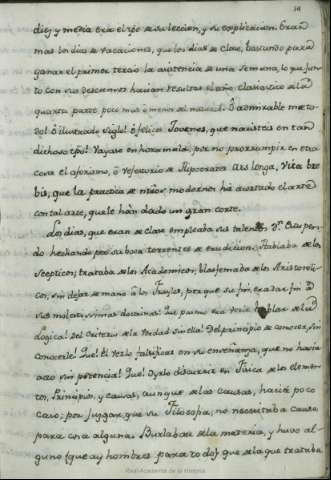 diez y media era el tpo de su leccion, y su explicacion. Eran
mas los dias de vacaciones, que los dias de clase, bastando para
ganar el primer tercio la asistencia de una semana, lo que jun-
to con sus descuentos hacian resultar el año clasico de la
quarta parte poco mas ó menos del natural. O admirable meto-
do! ô ilustrado siglo! ô felices Jovenes, que nacisteis en tan
dichoso tpo! Vayase en hora mala, por no prorrumpir en otra
cosa el aforismo, ô refectorio de Hipocrates Ars longa, Vita bre-
bis, que la practica de modernos ha ajustado el arte
con tal arte, que le han dado un gran corte.
Los dias, que eran de clase empleaba sus talentos Dn
do hechando por su boca torrentes de erudicion. Hablaba de los
Scepticos; trataba de los Academicos, blasfemaba de los Aristoteli-
cos, sin dejar de mano â los porque su fin, era dar fin â
sus molestissimas doctrinas! Que pasmo era verle hablar de la
Logica! Del criterio de la Verdad sin ella! Del principio de conocer, sin
conocerle! Que! El verlo falsificar en su enseñanza, que no havia
acto sin potencia! Que! Oyrlo discurrir en Fisica de los elemen-
tos, Principios, y causas, aunque de las causas, hacia poco
caso; por juzgar, que su Filosofia, no necesitaba causa
para cosa alguna. Burlabase de la materia, y huvo al-
guno (que ay hombres para todo) que de la que trataba
Real Academia de la Historia